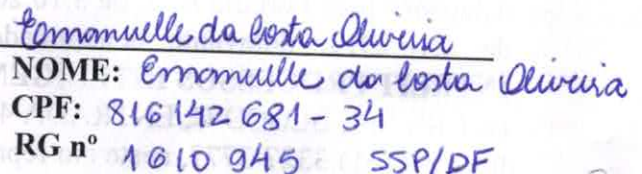 Emanuelle da Costa Oliveira
NOME: Emanuelle da Costa Oliveira
CPF: 816142681-34
RG nº 1610945 SSP/DF